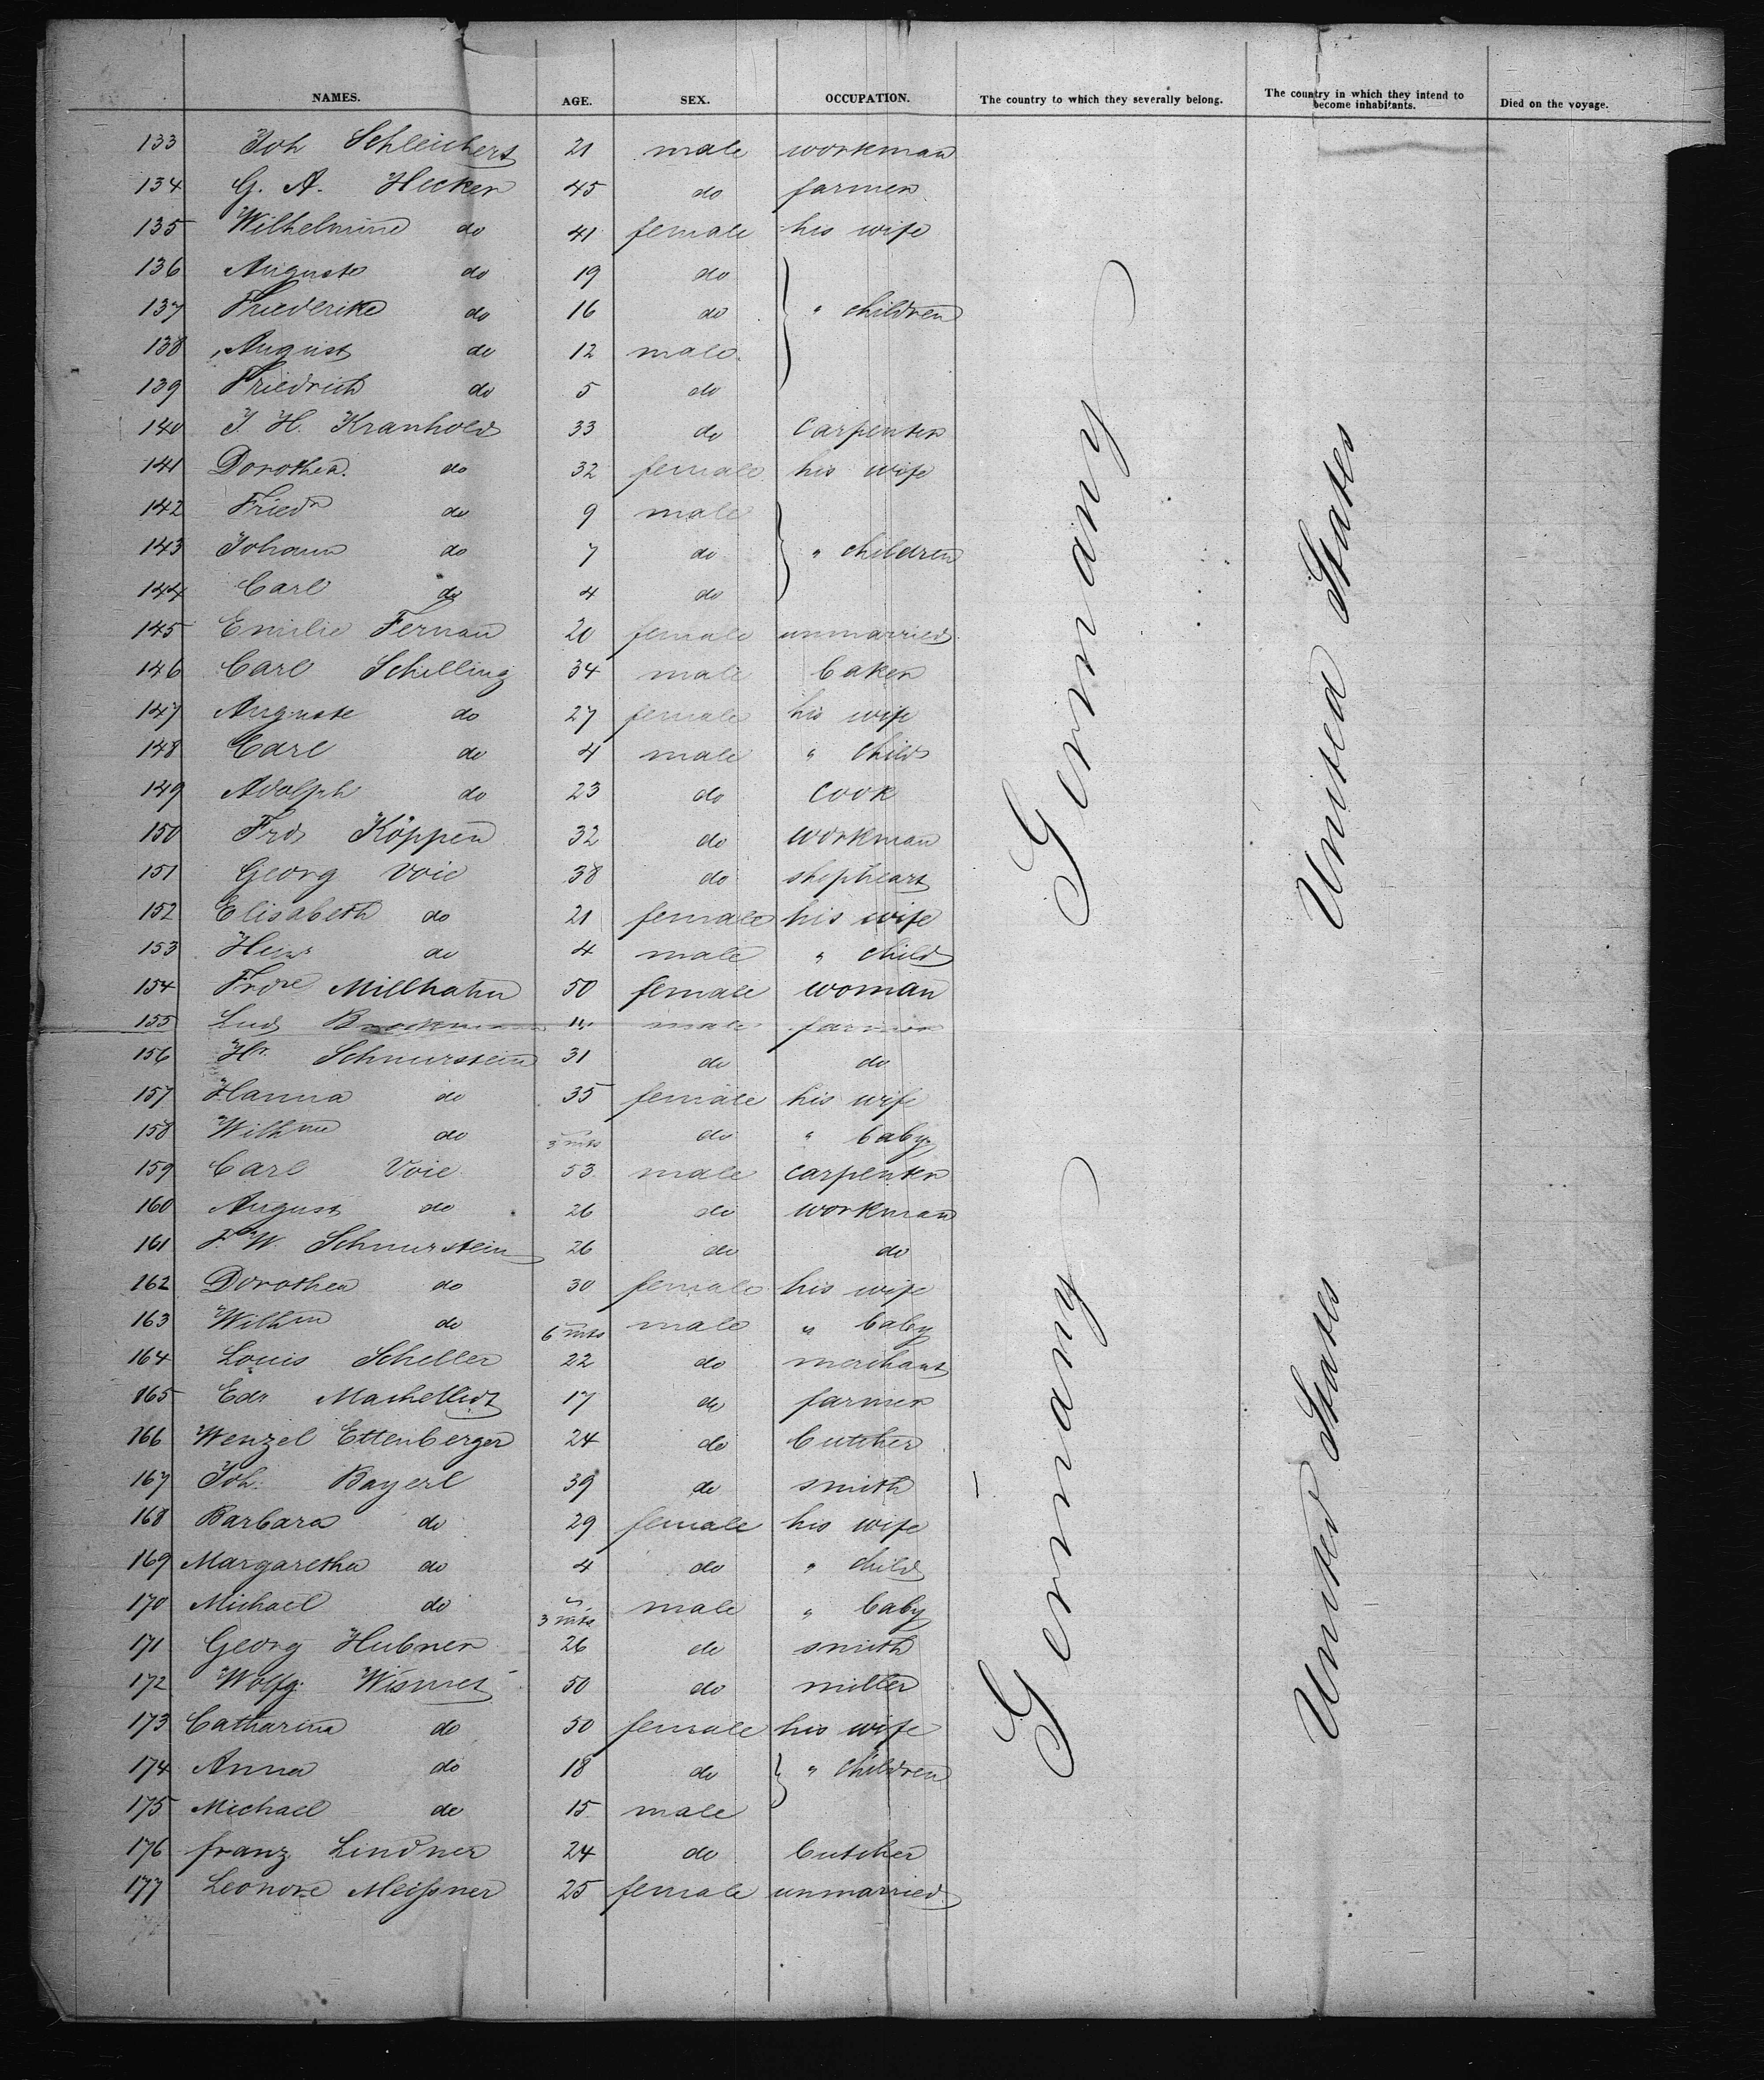 NAMES. AGE. SEX. OCCUPATION. The country to which they severally belong. The country in which they intend to become inhabitants. Died on the voyage.
133 Joh Schleichert 21 male workman
134 G. A. Hecker 45 do farmer
135 Wilhelmine do 41 female his wife
136 Auguste do 19 do
137 Friederike do 16 do " children
138 August do 12 male
139 Friedrich do 5 do
140 J H. Kranhold 33 do carpenter
141 Dorothea do 32 female his wife
142 Friedr do 9 male
143 Johann do 7 do " children
144 Carl do 4 do
145 Emilie Fernau 20 female unmarried
146 Carl Schilling 34 male baker
147 Auguste do 27 female his wife
148 Carl do 4 male " child
149 Adolph do 23 do cook
150 Frd Köppen 32 do workman
151 Georg Voie 38 do shepheart
152 Elisabeth do 21 female his wife
153 Heinr do 4 male " child
154 Frdre Millhahn 50 female woman
155 Lud male farmer
156 Hr. Schnurstein 31 do do
157 Hanna do 35 female his wife
158 Wilhme do 3 mts do " baby
159 Carl Voie 53 male carpenter
160 August do 26 do workman
161 Fr W. Schnurstein 26 do do
162 Dorothea do 30 female his wife
163 Wilhm do 6 mts male " baby
164 Louis Scheller 22 do merchant
165 Edr Machelleidt 17 do farmer
166 Wenzel Ettenberger 24 do butcher
167 Joh. Bayerl 39 do smith
168 Barbara do 29 female his wife
169 Margaretha do 4 do " child
170 Michael do 3 mts male " baby
171 Georg Hubner 26 do smith
172 Wolfg. Wismet 50 do miller
173 Catharina do 50 female his wife
174 Anna do 18 do " children
175 Michael do 15 male
176 franz Lindner 24 do butcher
177 Leonore Meißner 25 female unmarried
Germany
United States
Germany
United States